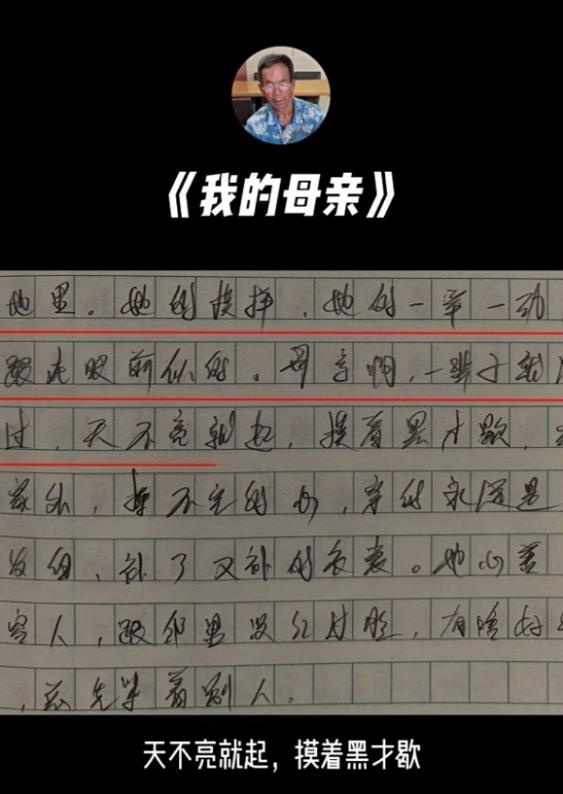 《我的母亲》
地里。她的模样，她的一举一动
跟在眼前似的。母亲啊，一辈子就
过，天不亮就起，摸着黑才歇，
家外，操不完的心，穿的永远是
发白、补了又补的衣裳。她心善
容人，跟邻里没红过脸，有啥好
，总先紧着别人。
天不亮就起，摸着黑才歇